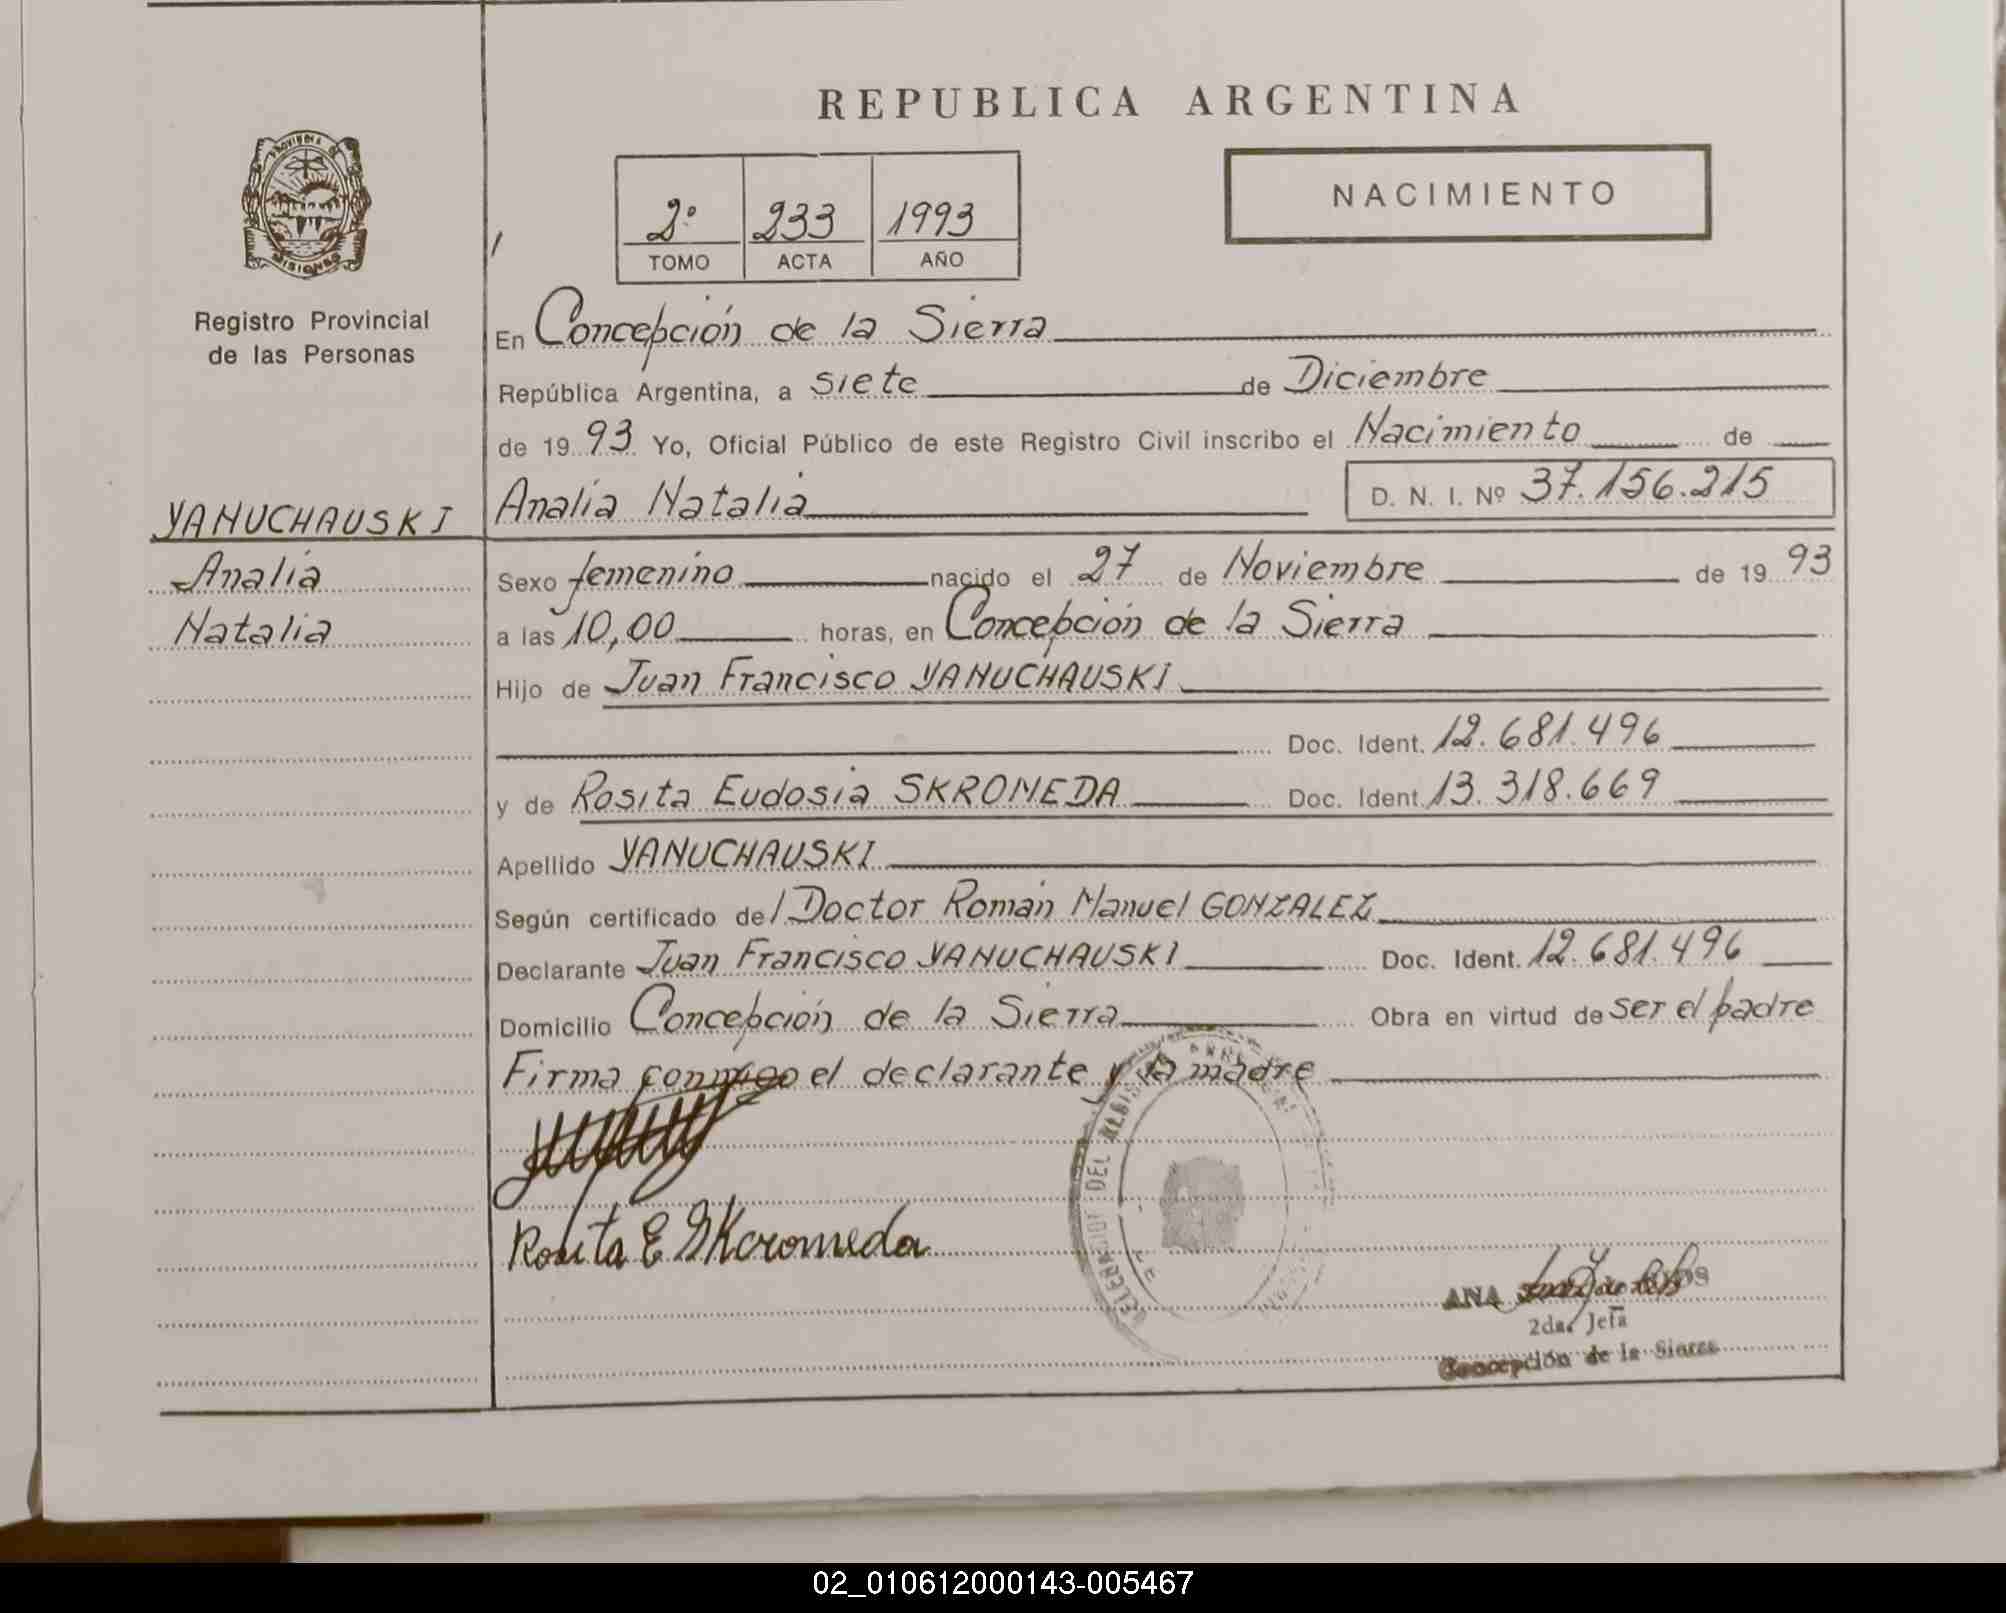 REPUBLICA ARGENTINA
PROVINCIA DE
MISIONES
Registro Provincial
de las Personas
2º 233 1993
TOMO ACTA AÑO
NACIMIENTO
En Concepción de la Sierra
República Argentina, a siete de Diciembre
de 19 93 Yo, Oficial Público de este Registro Civil inscribo el Nacimiento de
Analia Natalia D. N. I. Nº 37.156.215
YANUCHAUSKI
Analia
Natalia
Sexo femenino nacido el 27 de Noviembre de 19 93
a las 10,00 horas, en Concepción de la Sierra
Hijo de Juan Francisco YANUCHAUSKI
Doc. Ident. 12.681.496
y de Rosita Eudosia SKROMEDA Doc. Ident. 13.318.669
Apellido YANUCHAUSKI
Según certificado del Doctor Román Manuel GONZALEZ
Declarante Juan Francisco YANUCHAUSKI Doc. Ident. 12.681.496
Domicilio Concepción de la Sierra Obra en virtud de ser el padre
Firma conmigo el declarante y la madre
Rosita E Skromeda
DEL
ANA
2da. Jefa
Concepción de la Sierra
02_010612000143-005467